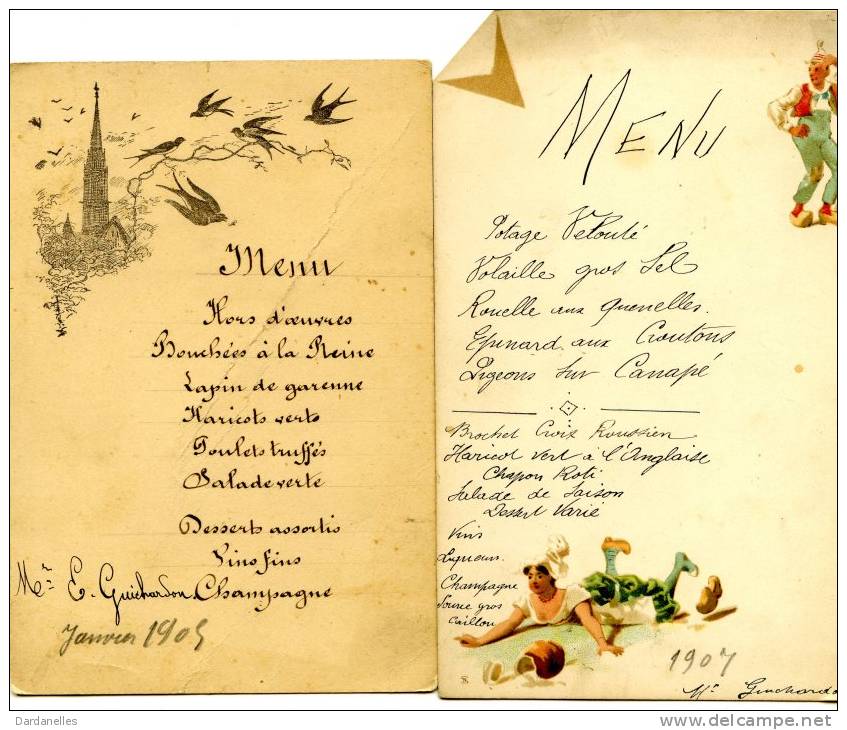 Menu
Hors d'œuvres
Bouchées à la Reine
Lapin de garenne
Haricots verts
Poulets truffés
Salade verte
Desserts assortis
Vins fins
Champagne
Mr E. Guichardon
Janvier 1905
MENU
Potage Velouté
Volaille gros Sel
Rouelle aux Quenelles.
Epinard aux Croutons
Pigeons sur Canapé
Brochet Croix Roussien
Haricot vert à l'Anglaise
Chapon Roti
Salade de Saison
Dessert Varié
Vins
Liqueurs.
Champagne
Source gros
Caillou
1907
Mr Guichardo
Dardanelles
www.delcampe.net